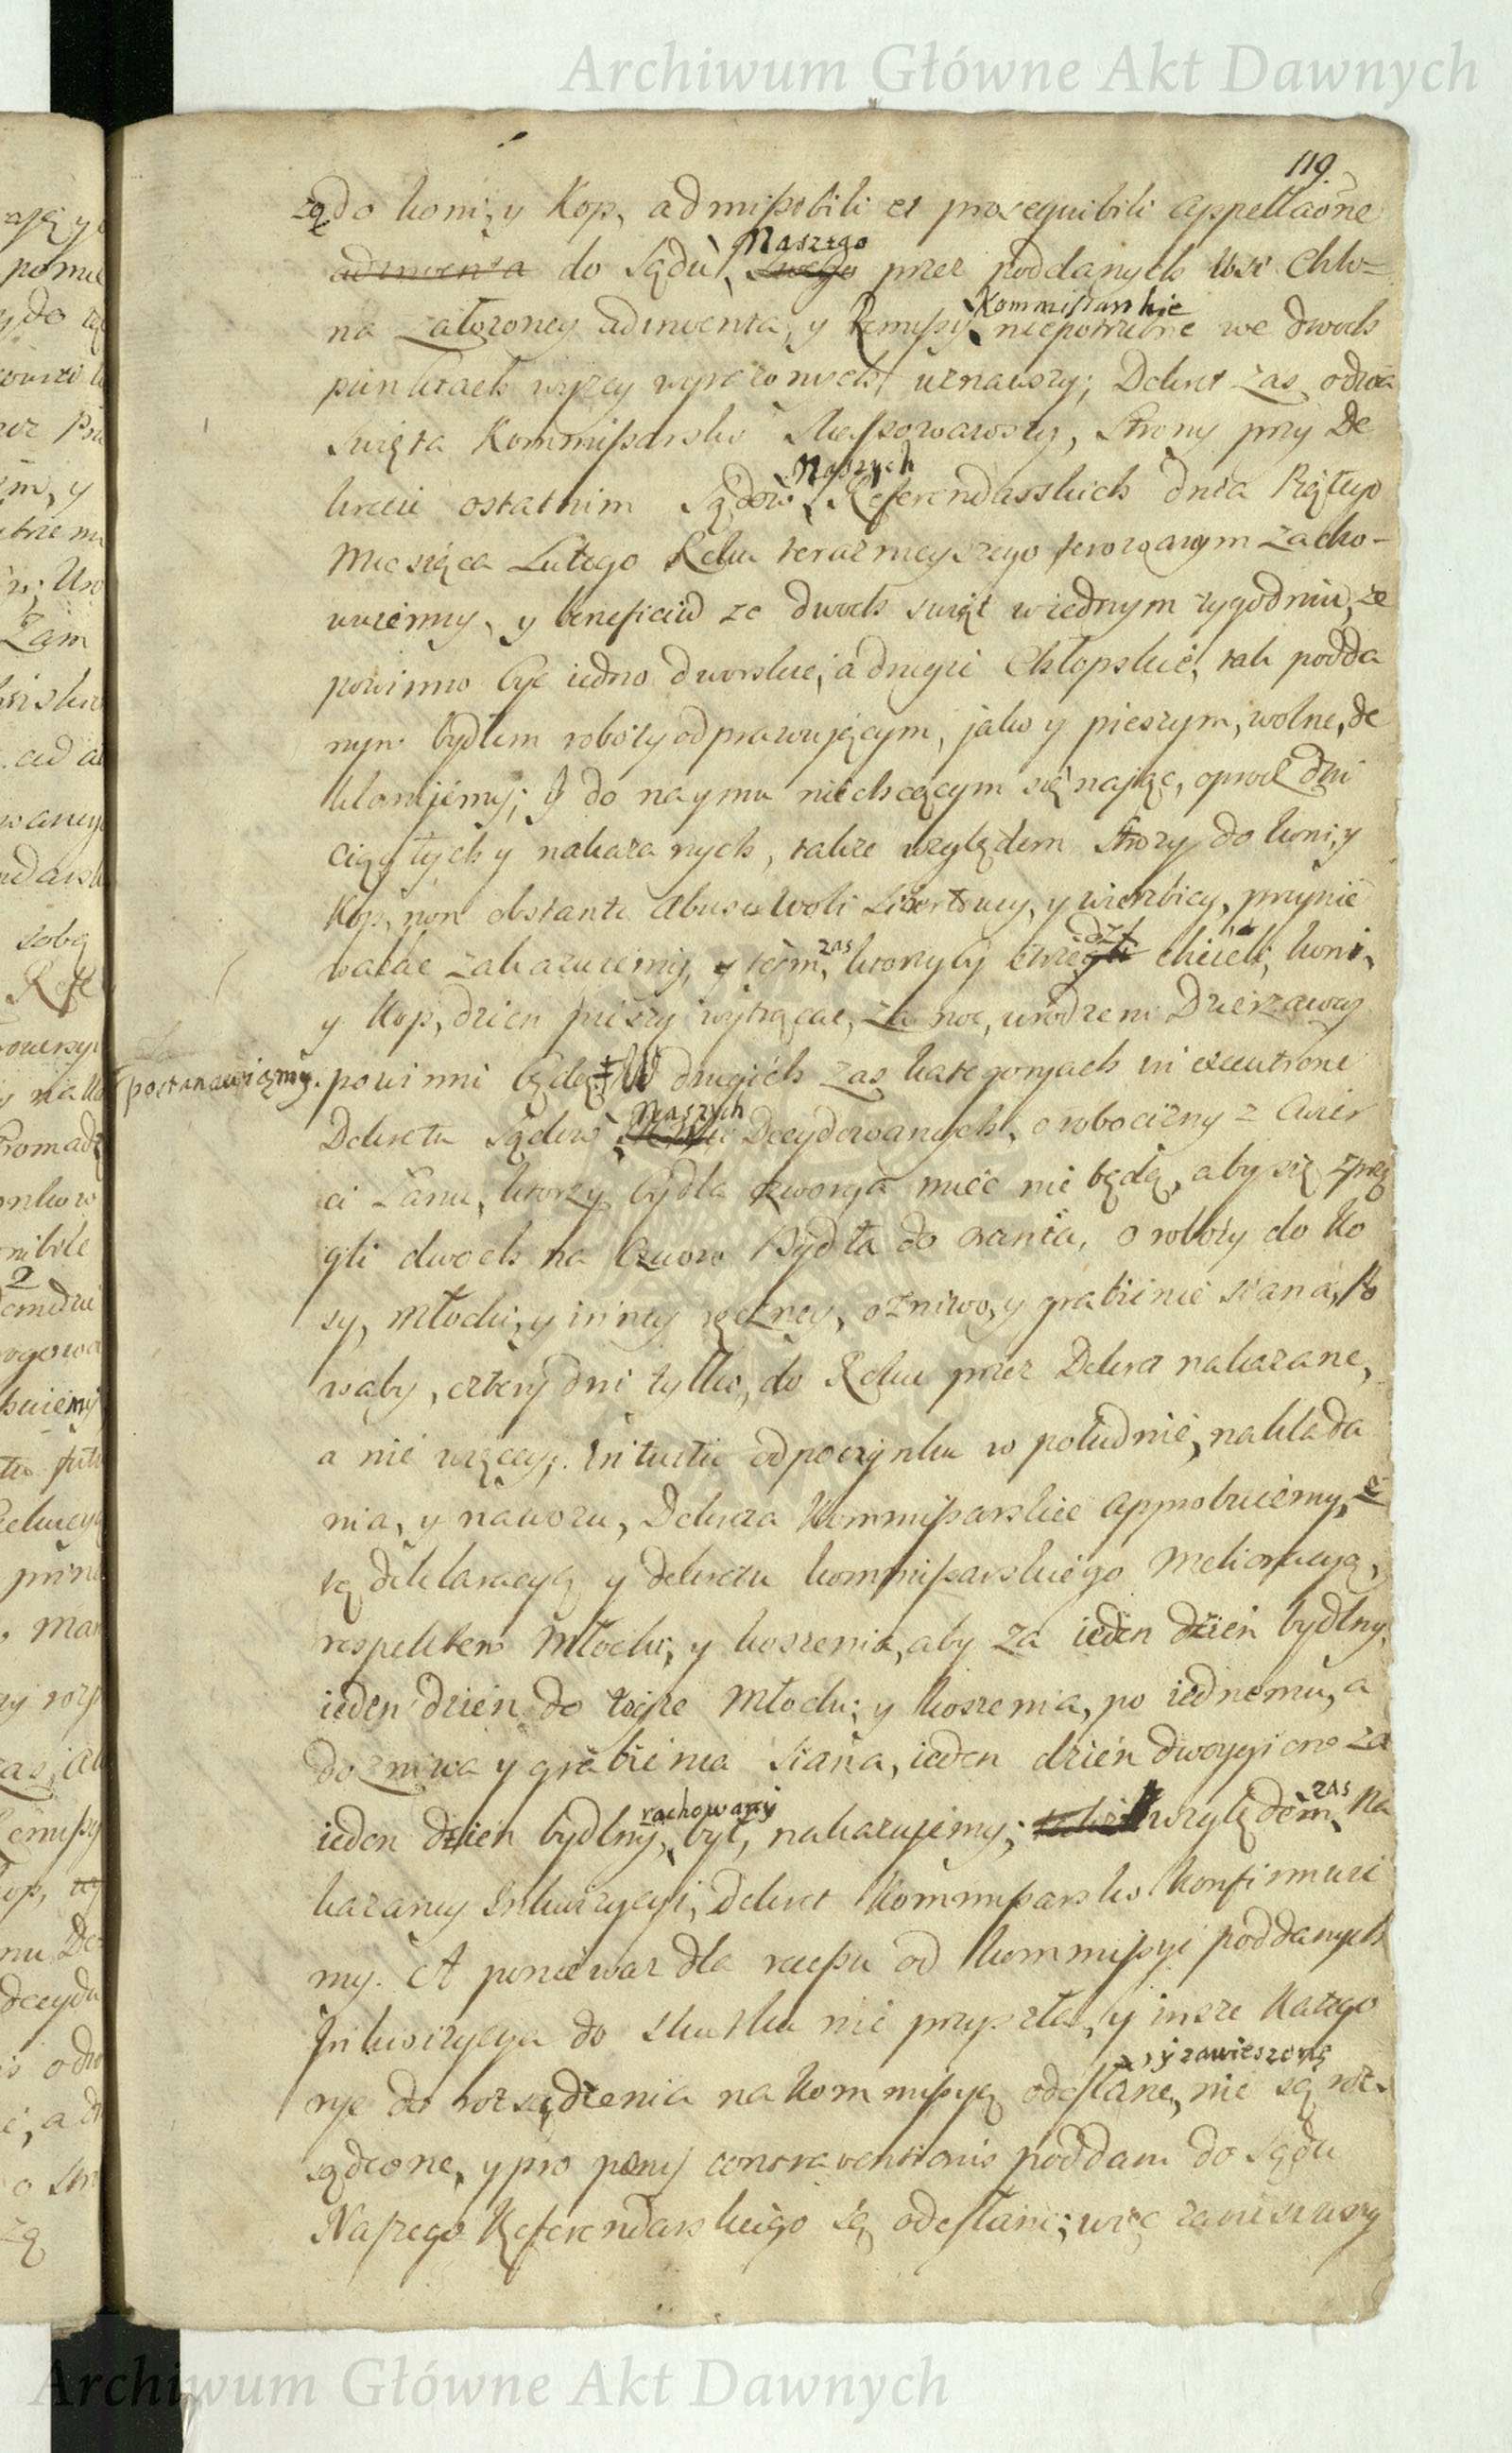 Archiwum Główne Akt Dawnych
119.
żą do koni, y Kop, admissibili et prosequibili appellaõne
adinventa do Sądu Naszego Swego przez poddanych Wsi Chło=
na założoney adinventa, y Remissy Kommissarskie niepotrzebne we dwoch
punktach wyzey wyrażonych, uznawszy; Dekret zas odwa
Swięta Kommissarski Skassowawszy, Strony przy De
krecie ostatnim Sądów Naszych Referendarskich dnia Piątego
Miesiąca Lutego Roku teraznieyszego ferowanym zacho-
wuiemy, y beneficiũ ze dwoch swiąt w iednym tygodniu, ze
powinno byc iedno dworskie, a drugie Chłopskie, tak podda
nym bydłem roboty odprawującym, jako y pieszym, wolne, de
klarujemy; y do naymu niechcącym się nająć, oprocz dni
ciągłych y nakazanych, także względem Strozy do koni, y
Kop, non obstante abusu Woli Libertowey, y wierzbicy, przynie
walac zakazuiemy, y tym zas, ktorzyby strzedz chcieli, koni,
y Kop, dzien pieszy wytrącać, za noc, urodzeni Dzierzawcy
postanawiamy. powinni będą. W drugich zas kategoryach in executione
Dekretu Sądów Naszych Decydowanych, o robocizny z cwier
ci Łanu, ktorzy bydła czworga mieć nie będą, aby się zprzę
gli dwoch na czworo Bydła do orania, o roboty do Ko
sy, młocki, y inney ręczney, o żniwo, y grabienie siana, Po
waby, cztery dni tylko, do Roku przez Dekret nakazane,
a nie więcey; Intuitu odpoczynku w południe, nakłada
nia, y nawozu, Dekreta Kommissarskie approbuiemy, z
tą deklaracyą y dekretu kommissarskiego Melioracyą,
respektem Młocki, y koszenia, aby za ieden dzień bydlny,
ieden dzień do teyże Młocki, y koszenia, po iednemu, a
do zniwa y grabienia siana, ieden dzień dwoygiem za
ieden dzień bydlny, rachowany był, nakazujemy; względem zas Na
kazaney Inkwizycyi, Dekret Kommissarski konfirmuie
my. A poniewaz dla recessu od kommissyi poddanych
Inkwizycya do skutku nie przyszła, y insze Katego
rye do rozsądzenia na kommissyą odesłane, y zawieszone nie są roz-
sądzone, y pro paenis contraventionis poddani do Sądu
Naszego Referendarskiego są odesłani; więc zawiesiwszy
Archiwum Główne Akt Dawnych